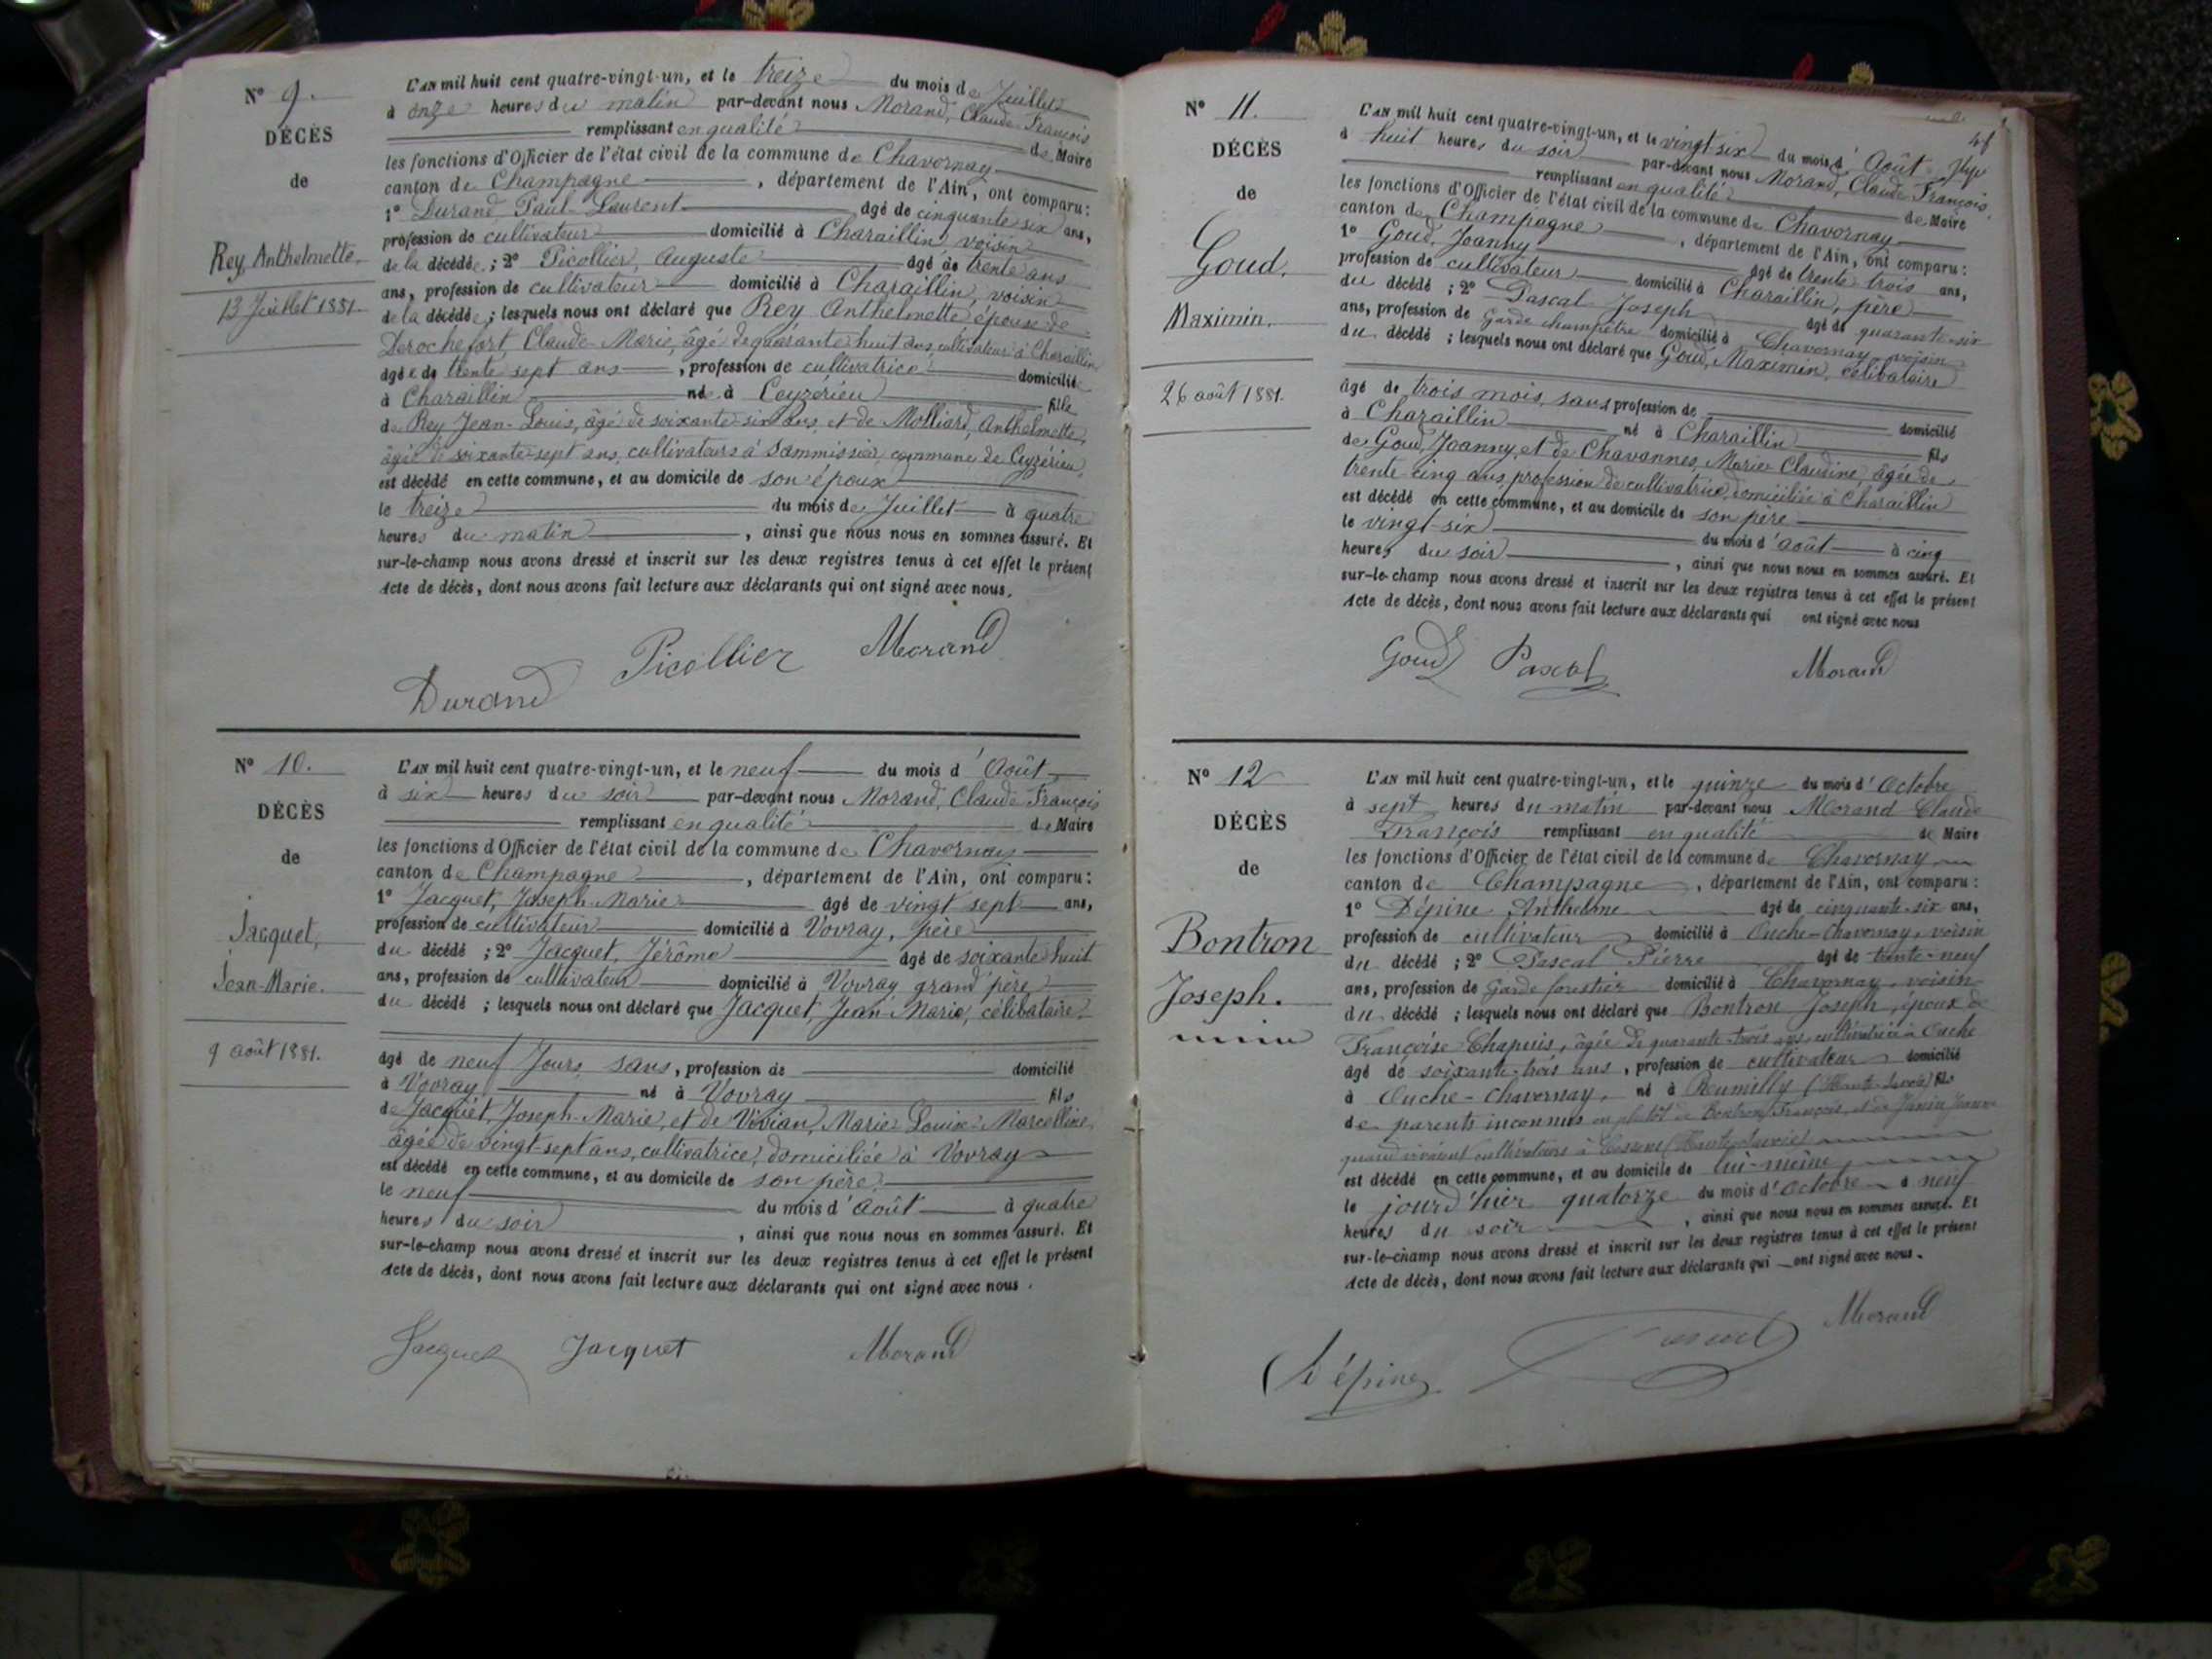 N° 9.
DÉCÈS
de
Rey, Anthelmette
13 Juillet 1881.
L'AN mil huit cent quatre-vingt-un, et le treize du mois de Juillet
à onze heures du matin par-devant nous Morand, Claude François
remplissant en qualité de Maire
les fonctions d'Officier de l'état civil de la commune de Chavornay
canton de Champagne, département de l'Ain, ont comparu:
1° Durand, Paul-Laurent âgé de cinquante six ans,
profession de cultivateur domicilié à Charaillin, voisin
de la décédée; 2° Picollier, Auguste âgé de trente ans
ans, profession de cultivateur domicilié à Charaillin, voisin
de la décédée; lesquels nous ont déclaré que Rey Anthelmette épouse de
Derochefort, Claude-Marie, âgé de quarante huit ans, cultivateur à Charaillin
âgée de trente sept ans, profession de cultivatrice domiciliée
à Charaillin née à Ceyzérieu fille
de Rey Jean-Louis, âgé de soixante six ans, et de Molliard, Anthelmette,
âgée de soixante-sept ans, cultivateurs à Sammissieu, commune de Ceyzérieu,
est décédé en cette commune, et au domicile de son époux
le treize du mois de Juillet à quatre
heures du matin, ainsi que nous nous en sommes assuré. Et
sur-le-champ nous avons dressé et inscrit sur les deux registres tenus à cet effet le présent
Acte de décès, dont nous avons fait lecture aux déclarants qui ont signé avec nous.
Durand Picollier Morand
N° 10.
DÉCÈS
de
Jacquet,
Jean-Marie.
9 août 1881.
L'AN mil huit cent quatre-vingt-un, et le neuf du mois d'Août
à six heures du soir par-devant nous Morand, Claude François
remplissant en qualité de Maire
les fonctions d'Officier de l'état civil de la commune de Chavornay
canton de Champagne, département de l'Ain, ont comparu:
1° Jacquet, Joseph-Marie âgé de vingt sept ans,
profession de cultivateur domicilié à Vovray, père
du décédé; 2° Jacquet, Jérôme âgé de soixante huit
ans, profession de cultivateur domicilié à Vovray grand'père
du décédé; lesquels nous ont déclaré que Jacquet, Jean-Marie, célibataire
âgé de neuf Jours, sans, profession de domicilié
à Vovray né à Vovray fils
de Jacquet, Joseph-Marie, et de Vivian, Marie Louise Marcelline,
âgée de vingt-sept ans, cultivatrice, domiciliée à Vovray
est décédé en cette commune, et au domicile de son père
le neuf du mois d'Août à quatre
heures du soir, ainsi que nous nous en sommes assuré. Et
sur-le-champ nous avons dressé et inscrit sur les deux registres tenus à cet effet le présent
Acte de décès, dont nous avons fait lecture aux déclarants qui ont signé avec nous.
Jacquet Jacquet Morand
N° 11.
DÉCÈS
de
Goud,
Maximin.
26 août 1881.
L'AN mil huit cent quatre-vingt-un, et le vingt-six du mois d'Août
à huit heures du soir par-devant nous Morand, Claude François,
remplissant en qualité de Maire
les fonctions d'Officier de l'état civil de la commune de Chavornay
canton de Champagne, département de l'Ain, ont comparu:
1° Goud, Joanny âgé de trente trois ans,
profession de cultivateur domicilié à Charaillin, père
du décédé; 2° Pascal Joseph âgé de quarante-six
ans, profession de Garde champêtre domicilié à Chavornay voisin
du décédé; lesquels nous ont déclaré que Goud, Maximin, célibataire
âgé de trois mois, sans profession de domicilié
à Charaillin né à Charaillin fils
de Goud, Joanny, et de Chavannes, Marie Claudine, âgée de
trente-cinq ans, profession de cultivatrice, domiciliée à Charaillin
est décédé en cette commune, et au domicile de son père
le vingt-six du mois d'Août à cinq
heures du soir, ainsi que nous nous en sommes assuré. Et
sur-le-champ nous avons dressé et inscrit sur les deux registres tenus à cet effet le présent
Acte de décès, dont nous avons fait lecture aux déclarants qui ont signé avec nous
Goud Pascal Morand
N° 12
DÉCÈS
de
Bontron
Joseph.
L'AN mil huit cent quatre-vingt-un, et le quinze du mois d'Octobre
à sept heures du matin par-devant nous Morand Claude
François remplissant en qualité de Maire
les fonctions d'Officier de l'état civil de la commune de Chavornay
canton de Champagne, département de l'Ain, ont comparu:
1° Dépine Anthelme âgé de cinquante-six ans,
profession de cultivateur domicilié à Ouche-Chavornay, voisin
du décédé; 2° Pascal Pierre âgé de trente-neuf
ans, profession de Garde forestier domicilié à Chavornay, voisin
du décédé; lesquels nous ont déclaré que Bontron Joseph, époux de
Françoise Chapuis, âgée de quarante-trois ans, cultivatrice à Ouche
âgé de soixante-trois ans, profession de cultivateur domicilié
à Ouche-Chavornay, né à Rumilly (Haute-Savoie) fils
de parents inconnus ou plutôt de Bontron François, et de Janin Jeanne
quand vivaient cultivateurs à (Haute-Savoie)
est décédé en cette commune, et au domicile de lui-même
le jourd'hier quatorze du mois d'Octobre à neuf
heures du soir, ainsi que nous nous en sommes assuré. Et
sur-le-champ nous avons dressé et inscrit sur les deux registres tenus à cet effet le présent
Acte de décès, dont nous avons fait lecture aux déclarants qui ont signé avec nous.
Dépine Pascal Morand